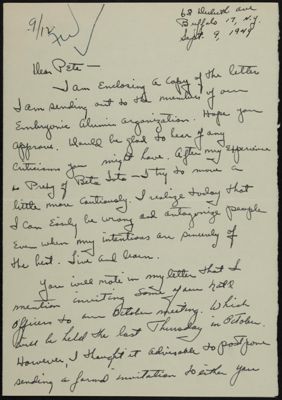 9/12
68 Duluth Ave
Buffalo 17, N.Y.
Sept. 9, 1949
Dear Pete —
I am Enclosing a copy of the letter
I am sending out to the members of our
Embryonic Alumni organization. Hope you
approve. Would be glad to hear of any
criticisms you might have. After my Experience
as Prexy of Beta Iota — I try to move a
little more cautiously. I realize today that
I can Easily be wrong and antagonize people
Even when my intentions are sincerely of
the best. Live and learn.
You will note in my letter that I
mention inviting some of your Natl
Officers to our October meeting. Which
will be held the last Thursday in October.
However, I thought it advisable to postpone
sending a formal invitation to either you